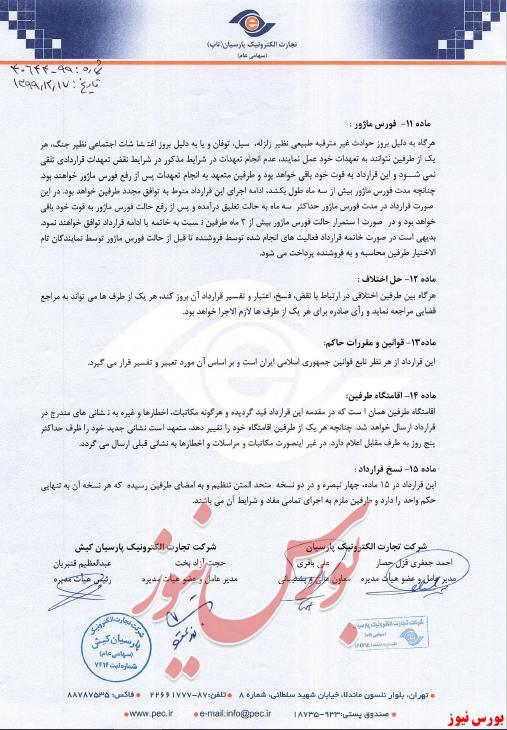 تجارت الکترونیک پارسیان(تاپ)
(سهامی عام)
شماره: ۹۹-۴۰۶۴۴
تاریخ: ۱۳۹۹,۱۲,۱۷
ماده ۱۱- فورس ماژور :
هرگاه به دلیل بروز حوادث غیر مترقبه طبیعی نظیر زلزله، سیل، توفان و یا به دلیل بروز اغتشاشات اجتماعی نظیر جنگ، هر
یک از طرفین نتوانند به تعهدات خود عمل نمایند، عدم انجام تعهدات در شرایط مذکور در شرایط نقض تعهدات قراردادی تلقی
نمی شود و این قرارداد به قوت خود باقی خواهد بود و طرفین متعهد به انجام تعهدات پس از رفع فورس ماژور خواهند بود.
چنانچه مدت فورس ماژور بیش از سه ماه طول بکشد، ادامه اجرای این قرارداد منوط به توافق مجدد طرفین خواهد بود. در این
صورت قرارداد در مدت فورس ماژور حداکثر سه ماه به حالت تعلیق درآمده و پس از رفع حالت فورس ماژور به قوت خود باقی
خواهد بود و در صورت استمرار حالت فورس ماژور بیش از ۳ ماه طرفین نسبت به خاتمه یا ادامه قرارداد توافق خواهند نمود.
بدیهی است در صورت خاتمه قرارداد فعالیت های انجام شده توسط فروشنده تا قبل از حالت فورس ماژور توسط نمایندگان تام
الاختیار طرفین محاسبه و به فروشنده پرداخت می شود.
ماده ۱۲- حل اختلاف :
هرگاه بین طرفین اختلافی در ارتباط با نقض، فسخ، اعتبار و تفسیر قرارداد آن بروز کند، هر یک از طرف ها می تواند به مراجع
قضایی مراجعه نماید و رأی صادره برای هر یک از طرف ها لازم الاجرا خواهد بود.
ماده۱۳- قوانین و مقررات حاکم:
این قرارداد از هر نظر تابع قوانین جمهوری اسلامی ایران است و بر اساس آن مورد تعبیر و تفسیر قرار می گیرد.
ماده ۱۴- اقامتگاه طرفین:
اقامتگاه طرفین همان است که در مقدمه این قرارداد قید گردیده و هرگونه مکاتبات، اخطارها و غیره به نشانی های مندرج در
قرارداد ارسال خواهد شد. چنانچه هر یک از طرفین اقامتگاه خود را تغییر دهد، متعهد است نشانی جدید خود را ظرف حداکثر
پنج روز به طرف مقابل اعلام دارد. در غیر اینصورت مکاتبات و مراسلات و اخطارها به نشانی قبلی ارسال می گردد.
ماده ۱۵- نسخ قرارداد :
این قرارداد در ۱۵ ماده، چهار تبصره و در دو نسخه متحد المتن تنظیم و به امضای طرفین رسیده که هر نسخه آن به تنهایی
حکم واحد را دارد و طرفین ملزم به اجرای تمامی مفاد و شرایط آن می باشند.
شرکت تجارت الکترونیک پارسیان
شرکت تجارت الکترونیک پارسیان کیش
احمد جعفری قزل حصار
علی باقری
حجت آزاد بخت
عبدالعظیم قنبریان
مدیر عامل و عضو هیأت مدیره
معاون مالی و پشتیبانی
مدیر عامل و عضو هیأت مدیره
رئیس هیأت مدیره
شرکت تجارت الکترونیک پارسیان
(سهامی عام)
شرکت تجارت الکترونیک
پارسیان کیش
(سهامی عام)
شماره ثبت ۷۴۱۴
بورس نیوز
تهران، بلوار نلسون ماندلا، خیابان شهید سلطانی، شماره ۸ • تلفن: ۸۷-۲۲۶۶۱۷۷۷ • فاکس: ۸۸۷۸۷۵۳۵
صندوق پستی: ۹۳۳-۱۸۷۳۵ • e-mail:info@pec.ir • www.pec.ir
بورس نیوز